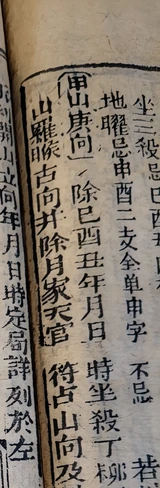 坐三殺忌
地曜忌申酉二支全单申字 不忌
若
甲山庚向 除巳酉丑年月日 時坐殺丁柳
山羅睺占向并除月家天官 符占山向及
開山立向年月日時定局詳列於左